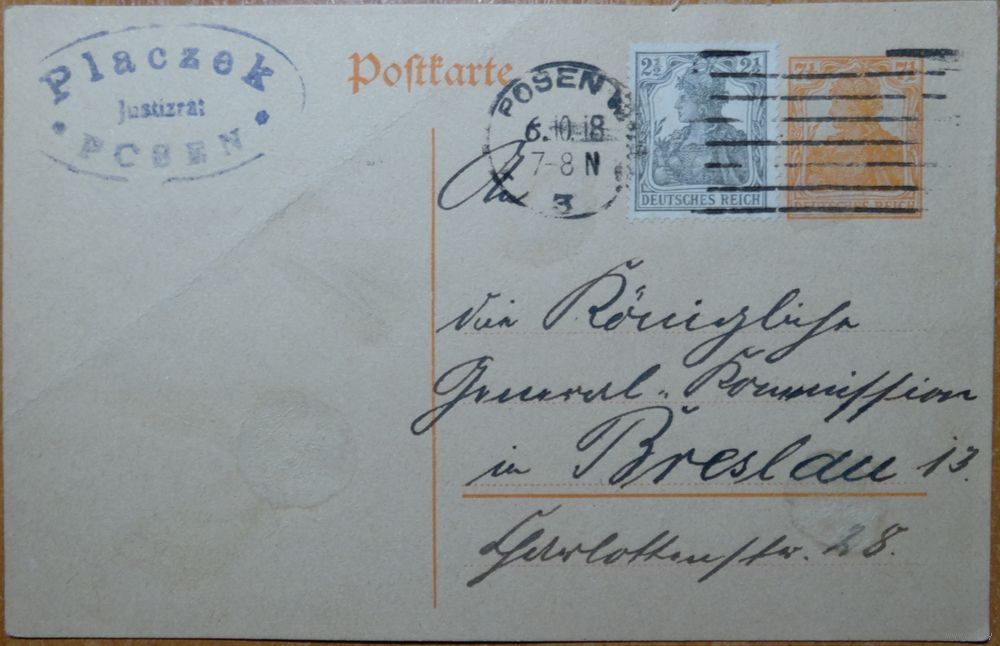 Placzek
Justizrat
POSEN
Postkarte
POSEN W
6.10.18
7-8 N
3
2½ 2½
DEUTSCHES REICH
7½ 7½
DEUTSCHES REICH
An
die Königliche
General-Kommission
in Breslau 13.
Charlottenstr. 28.